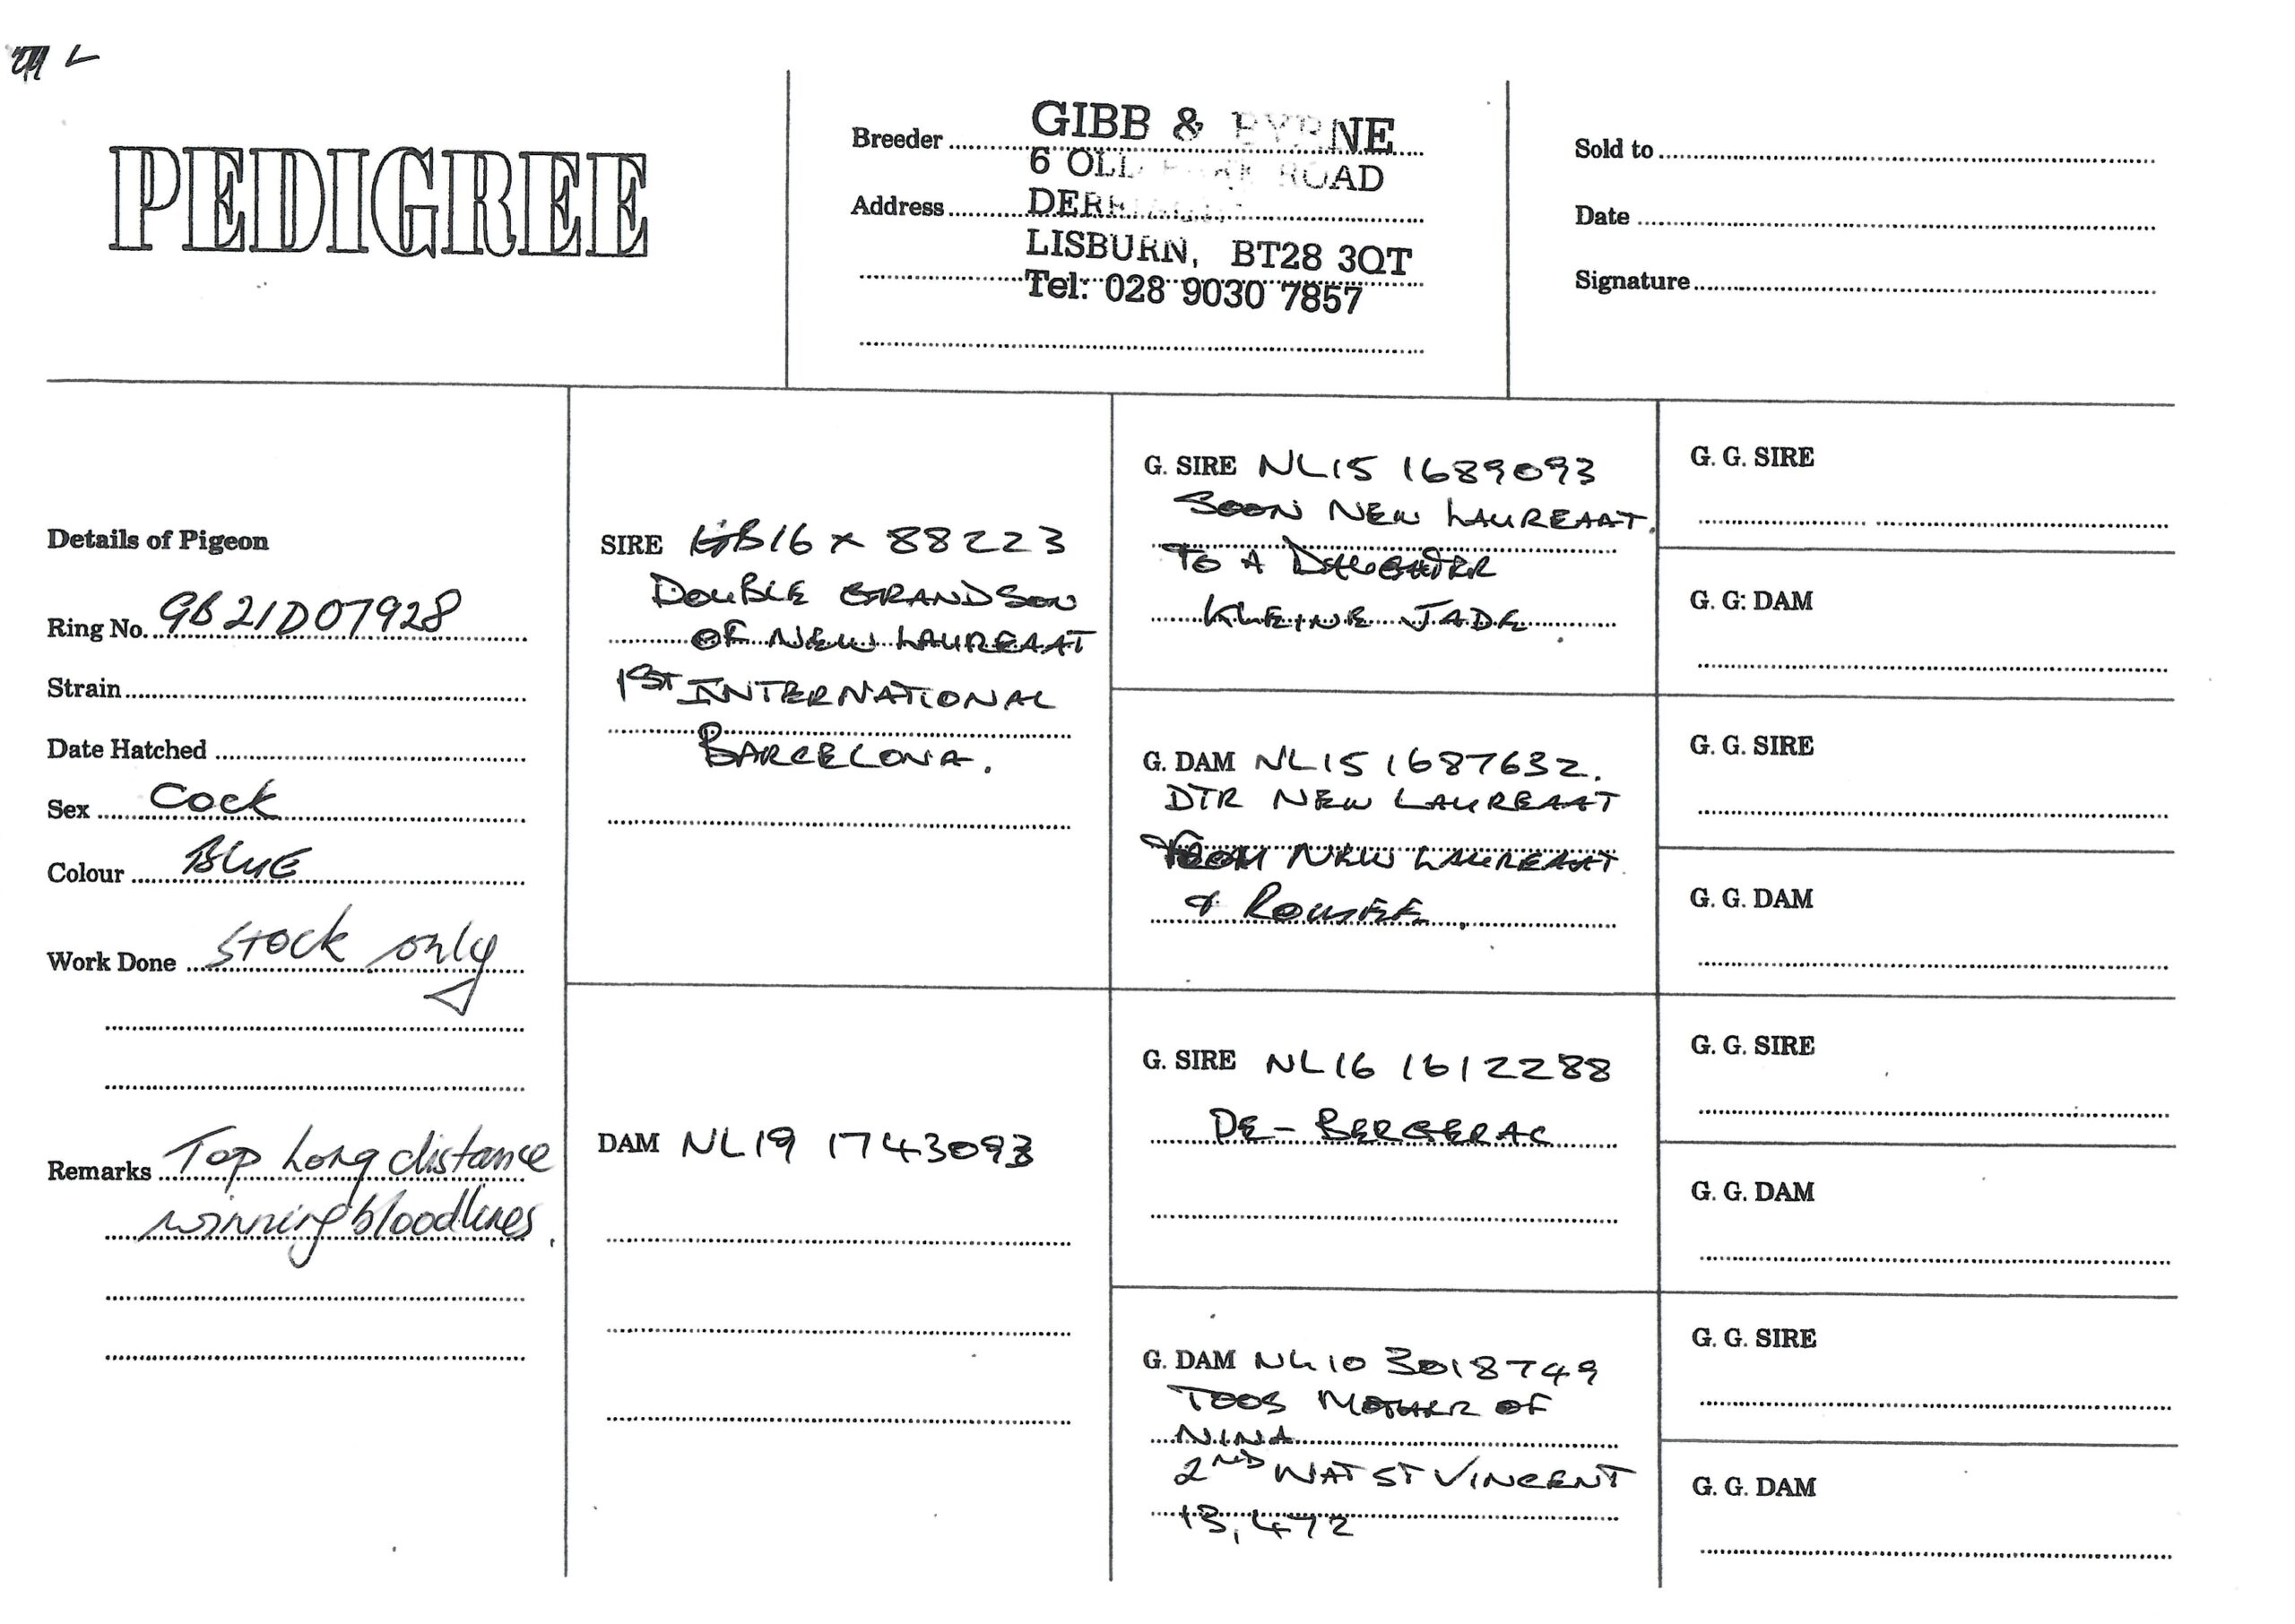 PEDIGREE
Breeder GIBB & BYRNE
6 OLD ROAD
Address
LISBURN, BT28 3QT
Tel: 028 9030 7857
Sold to
Date
Signature
Details of Pigeon
Ring No. GB21D07928
Strain
Date Hatched
Sex Cock
Colour BLUE
Work Done Stock only
Remarks Top Long distance
winning bloodlines.
SIRE GB16 X 88223
DOUBLE GRANDSON
OF NEW LAUREAAT
1ST INTERNATIONAL
BARCELONA.
DAM NL19 1743093
G. SIRE NL15 1689093
SOON NEW LAUREAAT.
TO A DAUGHTER
KLEINE JADE
G. DAM NL15 1687632.
DTR NEW LAUREAAT
FROM NEW LAUREAAT
&
G. SIRE NL16 1612288
DE - BERGERAC
G. DAM NL10 3018749
TOOS MOTHER OF
NINA
2ND NAT ST VINCENT
13,472
G. G. SIRE
G. G: DAM
G. G. SIRE
G. G. DAM
G. G. SIRE
G. G. DAM
G. G. SIRE
G. G. DAM